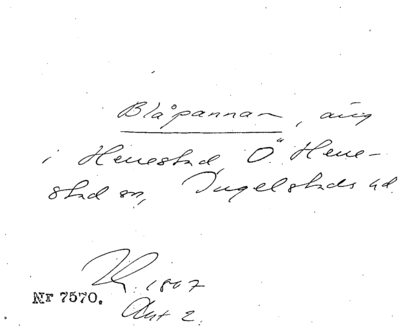 Blåpannan, äng
i Henestad, Ö. Hene-
stad sn, Ingelstads hd.
1807
Akt 2.
Nr 7570.